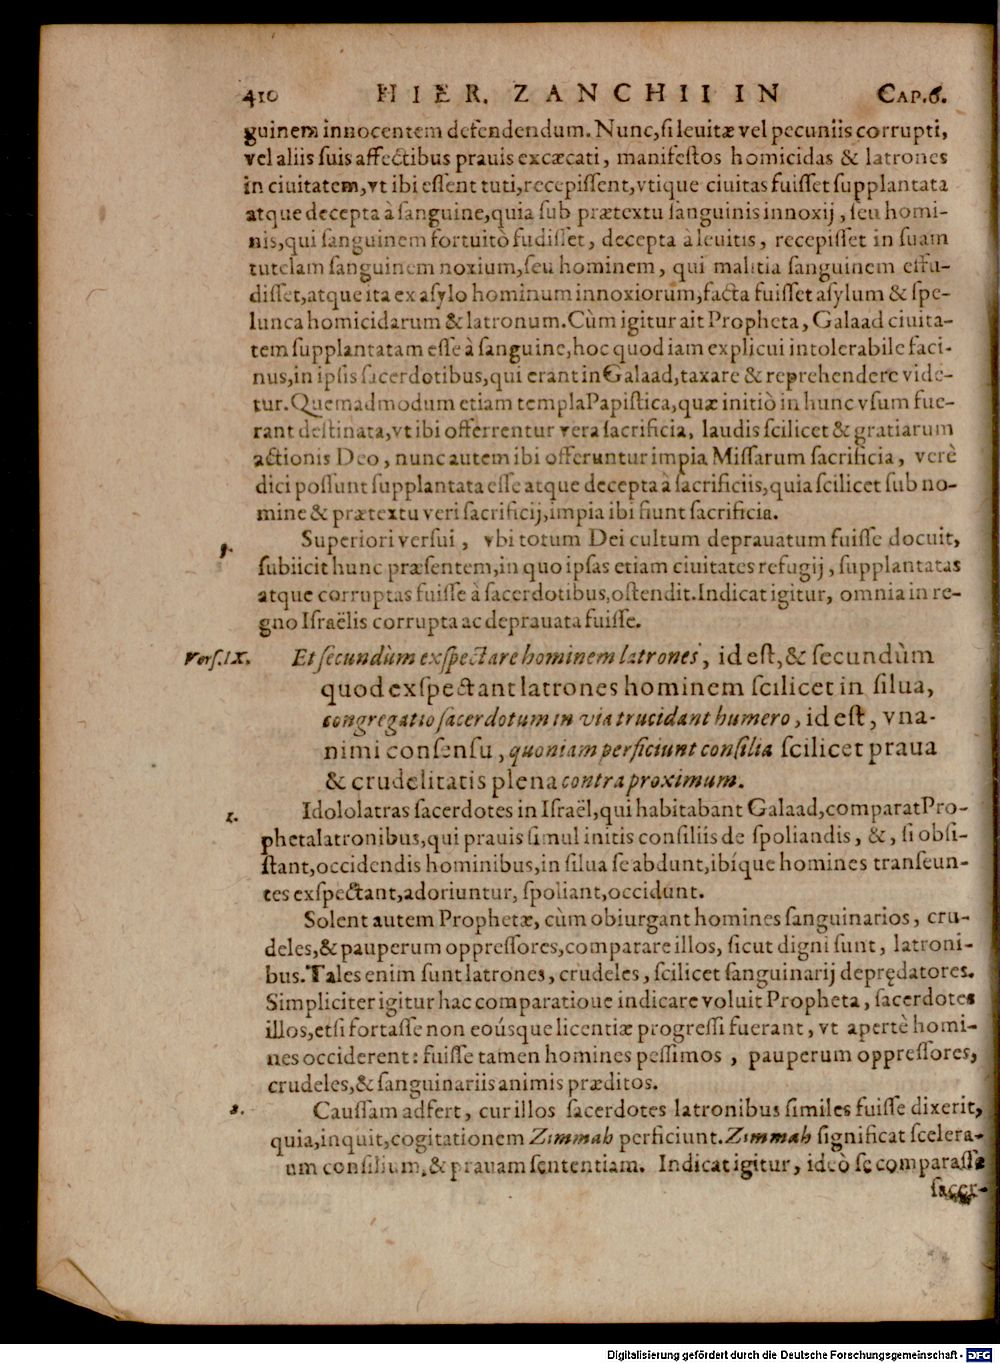 410 HIER. ZANCHII IN CAP. 6.
guinem innocentem defendendum. Nunc, ſi leuitæ vel pecuniis corrupti,
vel aliis ſuis affectibus prauis excæcati, manifeſtos homicidas & latrones
in ciuitatem, vt ibi eſſent tuti, recepiſſent, vtique ciuitas fuiſſet ſupplantata
atque decepta à ſanguine, quia ſub prætextu ſanguinis innoxij, ſeu homi-
nis, qui ſanguinem fortuitò fudiſſet, decepta à leuitis, recepiſſet in ſuam
tutelam ſanguinem noxium, ſeu hominem, qui malitia ſanguinem effu-
diſſet, atque ita ex aſylo hominum innoxiorum, facta fuiſſet aſylum & ſpe-
lunca homicidarum & latronum. Cùm igitur ait Propheta, Galaad ciuita-
tem ſupplantatam eſſe à ſanguine, hoc quod iam explicui intolerabile faci-
nus, in ipſis ſacerdotibus, qui erant in Galaad, taxare & reprehendere vide-
tur. Quemadmodum etiam templa Papiſtica, quæ initiò in hunc vſum fue-
rant deſtinata, vt ibi offerrentur vera ſacrificia, laudis ſcilicet & gratiarum
actionis Deo, nunc autem ibi offeruntur impia Miſſarum ſacrificia, verè
dici poſſunt ſupplantata eſſe atque decepta à ſacrificiis, quia ſcilicet ſub no-
mine & prætextu veri ſacrificij, impia ibi fiunt ſacrificia.
Superiori verſui, vbi totum Dei cultum deprauatum fuiſſe docuit,
ſubiicit hunc præſentem, in quo ipſas etiam ciuitates refugij, ſupplantatas
atque corruptas fuiſſe à ſacerdotibus, oſtendit. Indicat igitur, omnia in re-
gno Iſraëlis corrupta ac deprauata fuiſſe.
Verſ. IX. Et ſecundùm exſpectare hominem latrones, id eſt, & ſecundùm
quod exſpectant latrones hominem ſcilicet in ſilua,
congregatio ſacerdotum in via trucidant humero, id eſt, vna-
nimi conſenſu, quoniam perficiunt conſilia ſcilicet praua
& crudelitatis plena contra proximum.
1. Idololatras ſacerdotes in Iſraël, qui habitabant Galaad, comparat Pro-
pheta latronibus, qui prauis ſimul initis conſiliis de ſpoliandis, &, ſi obſi-
ſtant, occidendis hominibus, in ſilua ſe abdunt, ibíque homines tranſeun-
tes exſpectant, adoriuntur, ſpoliant, occidunt.
Solent autem Prophetæ, cùm obiurgant homines ſanguinarios, cru-
deles, & pauperum oppreſſores, comparare illos, ſicut digni ſunt, latroni-
bus. Tales enim ſunt latrones, crudeles, ſcilicet ſanguinarij deprędatores.
Simpliciter igitur hac comparatione indicare voluit Propheta, ſacerdotes
illos, etſi fortaſſe non eoúsque licentiæ progreſſi fuerant, vt apertè homi-
nes occiderent: fuiſſe tamen homines peſſimos, pauperum oppreſſores,
crudeles, & ſanguinariis animis præditos.
2. Cauſſam adfert, cur illos ſacerdotes latronibus ſimiles fuiſſe dixerit,
quia, inquit, cogitationem Zimmah perficiunt. Zimmah ſignificat ſcelera-
um conſilium, & prauam ſententiam. Indicat igitur, ideò ſe comparaſſe
ſacer-
Digitalisierung gefördert durch die Deutsche Forschungsgemeinschaft - DFG